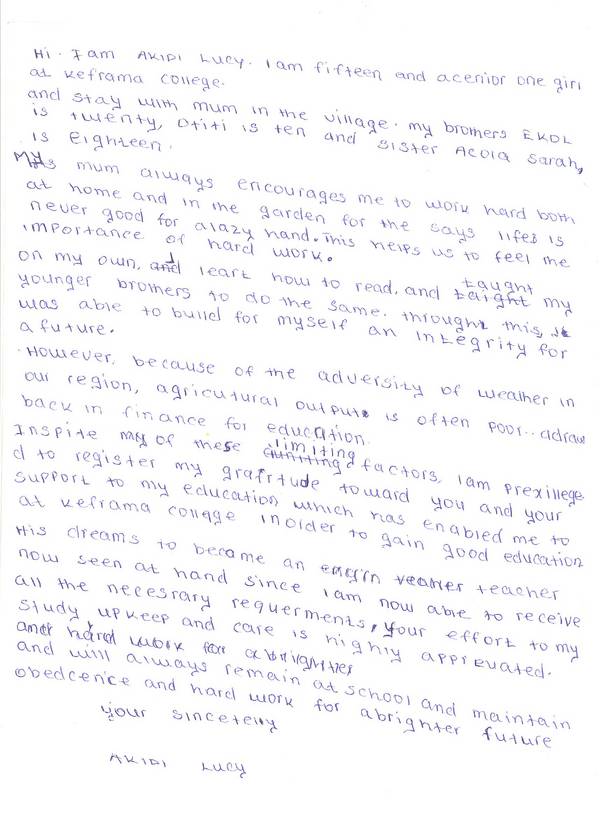 Hi. I am AKIDI LUCY. I am fifteen and acenior one girl
at Keframa college.
and stay with mum in the village. my brothers EKOL
is twenty, Otiti is ten and sister Acola Sarah,
is Eighteen.
My mum always encourages me to work hard both
at home and in the garden for the says lifes is
never good for alazy hand. This helps us to feel the
importance of hard work.
on my own, and I leart how to read, and taught my
younger brothers to do the same. throught this, 
was able to build for myself an integrity for
a future.
However, because of the adversity of weather in
our region, agricutural output is often poor.. adraw
back in finance for education.
Inspite my of these limiting factors, Iam prexillege
d to register my grafrtude toward you and your
support to my education which has enabled me to
at Keframa collage inolder to gain good education
His dreams to became an teacher
now seen at hand since I am now able to receive
all the necesrary requerments, your effort to my
study upkeep and care is highly apprevated.
and hard work for abrighter
and will always remain at school and maintain
obedcence and hard work for abrighter future
your sincetely
AKIDI LUCY